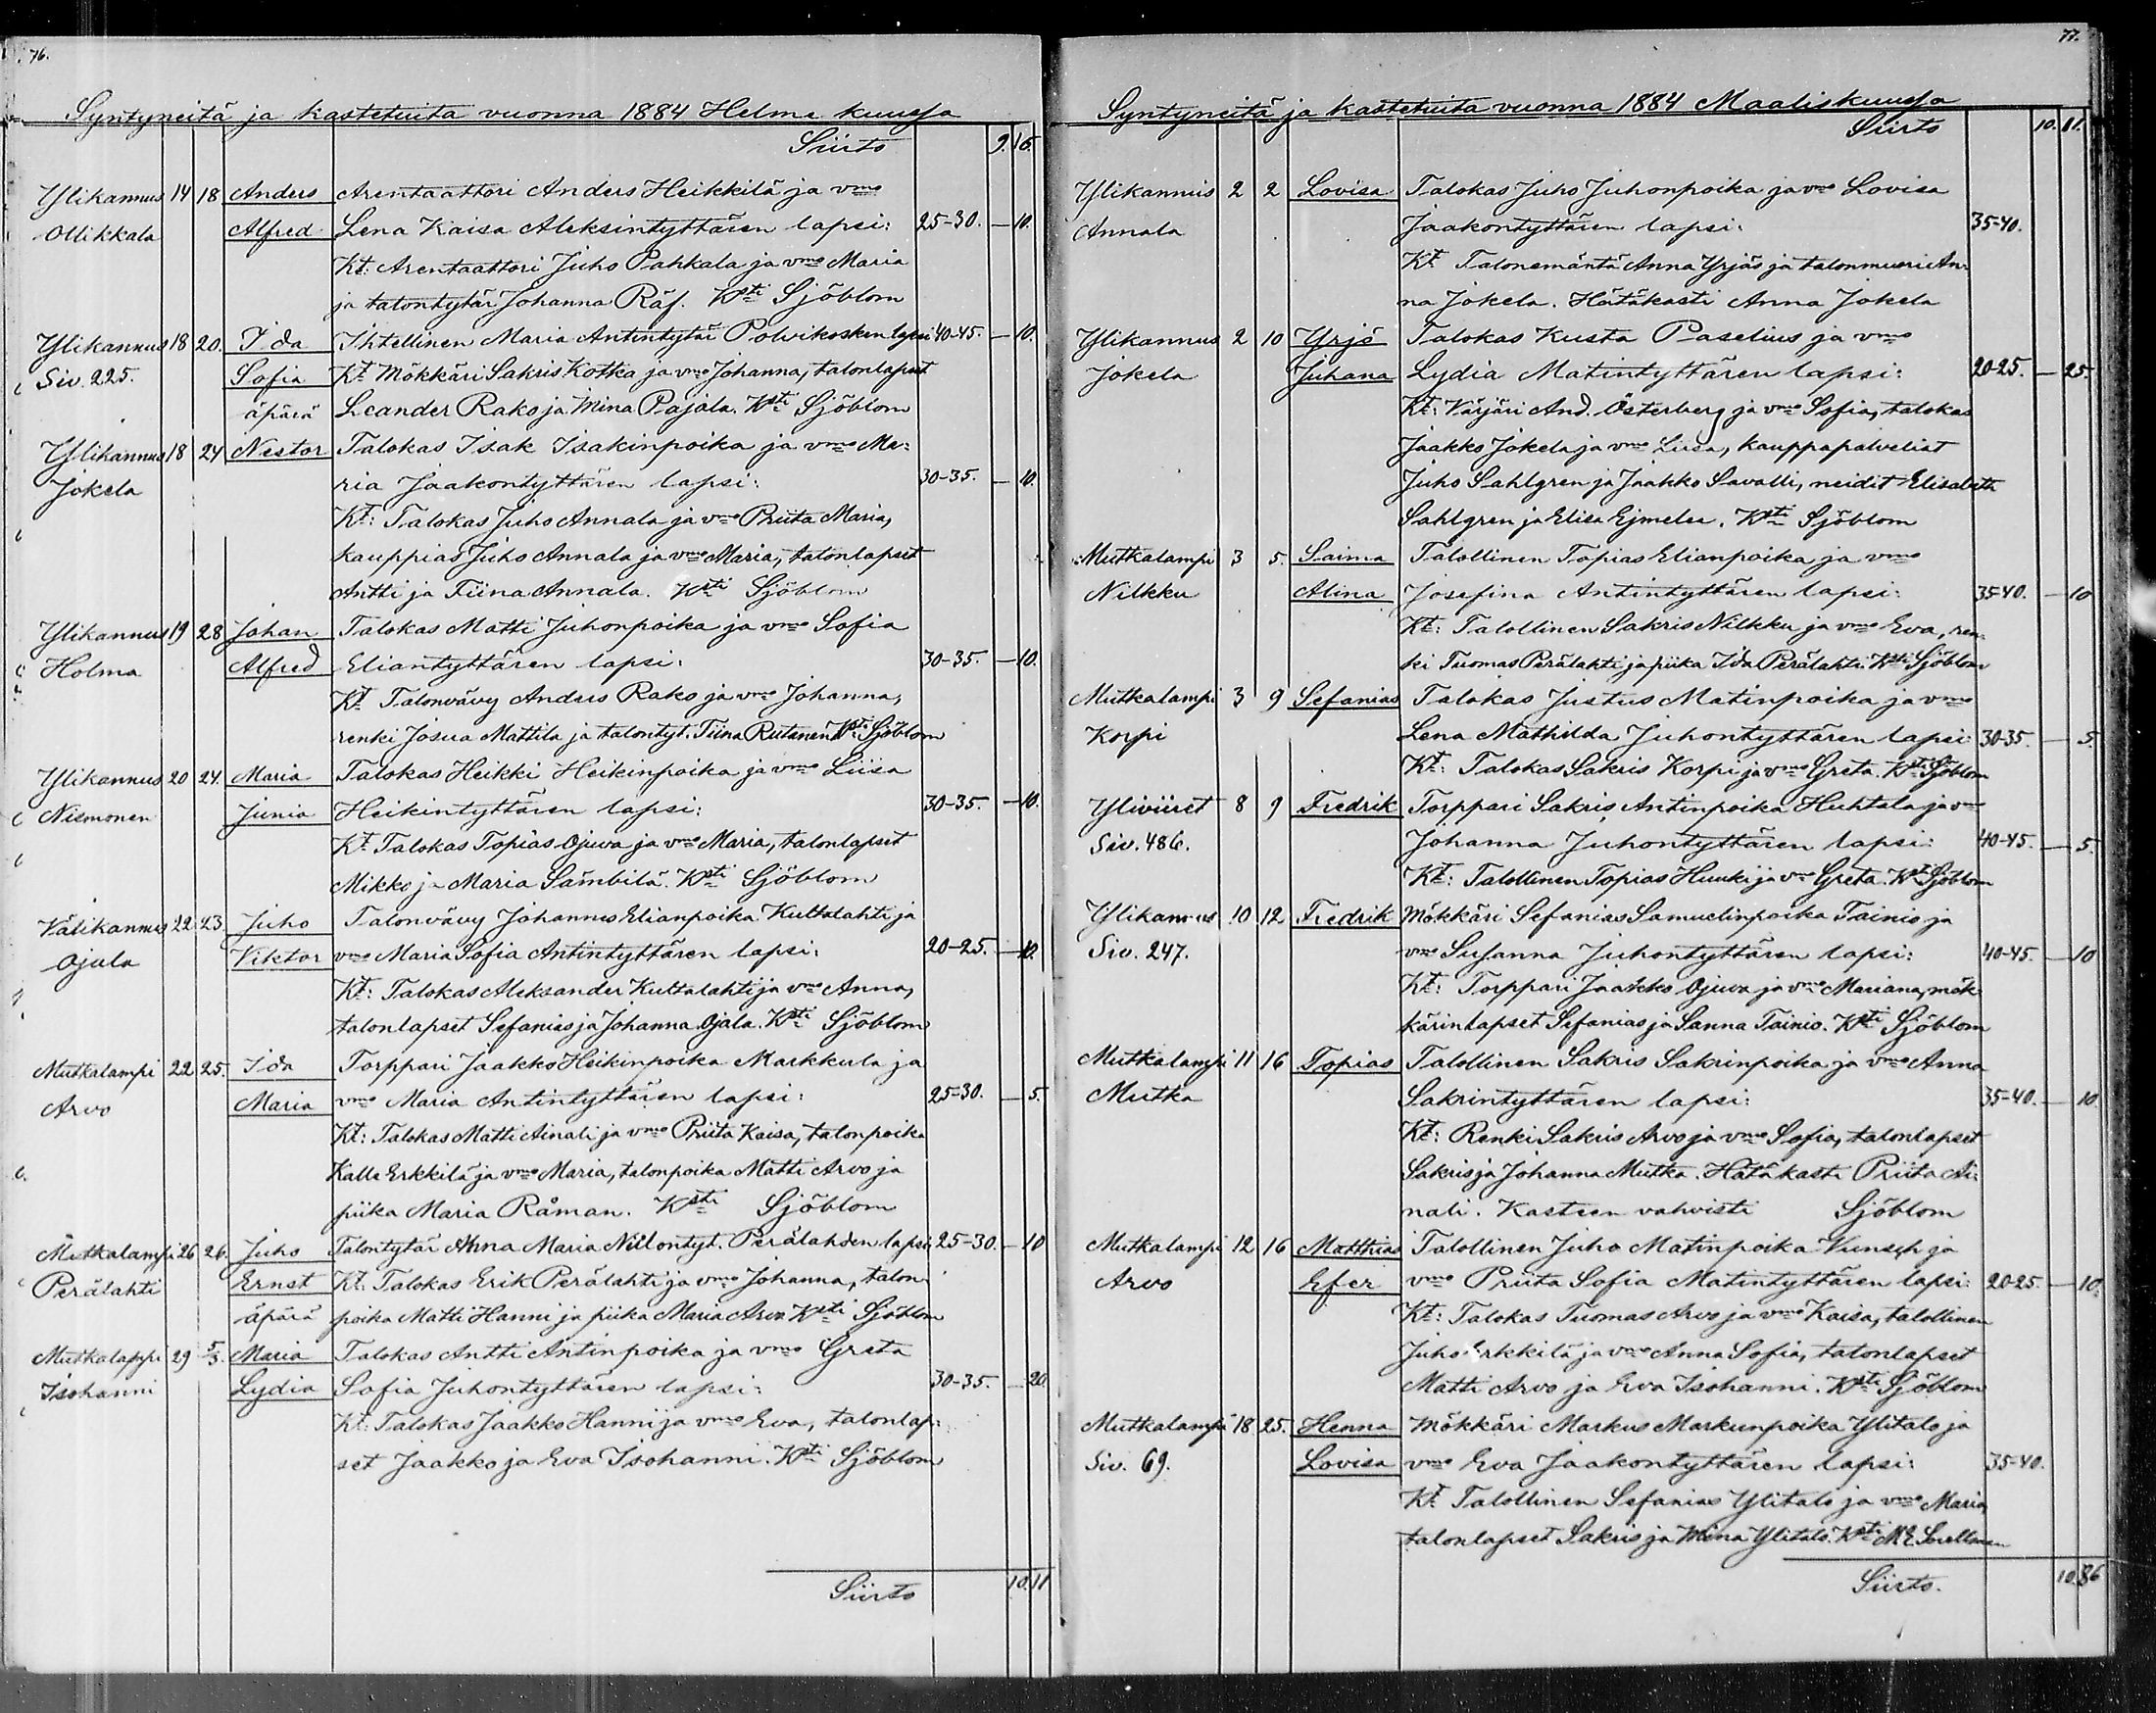 76.
Syntyneitä ja kastetuita vuonna 1884 Helme kuussa
Siirto 9. 16.
Ylikannus 14 18 Anders Arentaattori Anders Heikkilä ja vmo
Ollikkala Alfred Lena Kaisa Aleksintyttären lapsi: 25-30. — 10.
Kt: Arentaattori Juho Pahkala ja vmo Maria
ja talontytär Johanna Räf. Ksti Sjöblom
Ylikannus 18 20. Ida Ihtellinen Maria Antintytär Polvikosken lapsi 40-45. — 10.
Siv. 225. Sofia Kt: Mökkäri Sakris Kotka ja vmo Johanna, talonlapset
äpärä Leander Rako ja Mina Pajala. Ksti Sjöblom
Ylikannus 18 24 Nestor Talokas Isak Isakinpoika ja vmo Ma-
Jokela ria Jaakontyttären lapsi: 30-35. — 10.
Kt: Talokas Juho Annala ja vmo Priita Maria,
kauppias Juho Annala ja vmo Maria, talonlapset
Antti ja Tiina Annala. Ksti Sjöblom
Ylikannus 19 28 Johan Talokas Matti Juhonpoika ja vmo Sofia
Holma Alfred Eliantyttären lapsi: 30-35. — 10.
Kt: Talonvävy Anders Rako ja vmo Johanna,
renki Josua Mattila ja talontyt. Tiina Rutanen Ksti Sjöblom
Ylikannus 20 24. Maria Talokas Heikki Heikinpoika ja vmo Liisa
Niemonen Junia Heikintyttären lapsi: 30-35. — 10.
Kt: Talokas Topias Ojuva ja vmo Maria, talonlapset
Mikko ja Maria Sämbilä. Ksti Sjöblom
Välikannus 22 23. Juho Talonvävy Johannes Elianpoika Kuttalahti ja
Ojala Viktor vmo Maria Sofia Antintyttären lapsi: 20-25. — 10.
Kt: Talokas Aleksander Kuttalahti ja vmo Anna,
talonlapset Sefanias ja Johanna Ojala. Ksti Sjöblom
Mutkalampi 22 25. Ida Torppari Jaakko Heikinpoika Markkula ja
Arvo Maria vmo Maria Antintyttären lapsi: 25-30. — 5.
Kt: Talokas Matti Ainali ja vmo Priita Kaisa, talonpoika
Kalle Erkkilä ja vmo Maria, talonpoika Matti Arvo ja
piika Maria Råman. Ksti Sjöblom
Mutkalampi 26 26. Juho Talontytär Anna Maria Nillontyt. Perälahden lapsi 25-30. — 10
Perälahti Ernst Kt: Talokas Erik Perälahti ja vmo Johanna, talon-
äpärä poika Matti Hanni ja piika Maria Arvo Ksti Sjöblom
Mutkalampi 29 5/3. Maria Talokas Antti Antinpoika ja vmo Greta
Isohanni Lydia Sofia Juhontyttären lapsi: 30-35. — 20.
Kt: Talokas Jaakko Hanni ja vmo Eva, talonlap-
set Jaakko ja Eva Isohanni. Ksti Sjöblom
Siirto 10. 11
77.
Syntyneitä ja kastetuita vuonna 1884 Maaliskuussa
Siirto 10. 11.
Ylikannus 2 2 Lovisa Talokas Juho Juhonpoika ja vmo Lovisa
Annala Jaakontyttären lapsi: 35-40.
Kt: Talonemäntä Anna Yrjäs ja talonmuori An-
na Jokela. Hätäkasti Anna Jokela
Ylikannus 2 10 Yrjö Talokas Kusta Paselius ja vmo
Jokela Juhana Lydia Matintyttären lapsi: 20-25. — 25.
Kt: Värjäri And. Österberg ja vmo Sofia, talokas
Jaakko Jokela ja vmo Liisa, kauppapalveliat
Juho Sahlgren ja Jaakko Savalli, neidit Elisabeth
Sahlgren ja Elisa Ejmelee. Ksti Sjöblom
Mutkalampi 3 5. Saima Talollinen Topias Elianpoika ja vmo
Nilkku Alina Josefina Antintyttären lapsi: 35-40. — 10
Kt: Talollinen Sakris Nilkku ja vmo Eva, ren-
ki Tuomas Perälahti ja piika Ida Perälahti. Ksti Sjöblom
Mutkalampi 3 9 Sefanias Talokas Justus Matinpoika ja vmo
Korpi Lena Mathilda Juhontyttären lapsi: 30-35. — 5.
Kt: Talokas Sakris Korpi ja vmo Greta. Ksti Sjöblom
Yliviiret 8 9 Fredrik Torppari Sakris Antinpoika Huhtala ja vmo
Siv. 486. Johanna Juhontyttären lapsi: 40-45. — 5.
Kt: Talollinen Topias Huuki ja vmo Greta. Ksti Sjöblom
Ylikannus 10 12 Fredrik Mökkäri Sefanias Samuelinpoika Tainio ja
Siv. 247. vmo Susanna Juhontyttären lapsi: 40-45. — 10
Kt: Torppari Jaakko Ojuva ja vmo Mariana, mök-
kärinlapset Sefanias ja Sanna Tainio. Ksti Sjöblom
Mutkalampi 11 16 Topias Talollinen Sakris Sakrinpoika ja vmo Anna
Mutka Sakrintyttären lapsi: 35-40. — 10.
Kt: Renki Sakris Arvo ja vmo Sofia, talonlapset
Sakris ja Johanna Mutka. Hätäkasti Priita Ai-
nali. Kasteen vahvisti Sjöblom
Mutkalampi 12 16 Matthias Talollinen Juho Matinpoika Vunsch ja
Arvo Efer vmo Priita Sofia Matintyttären lapsi: 20-25. — 10.
Kt: Talokas Tuomas Arvo ja vmo Kaisa, talollinen
Juho Erkkilä ja vmo Anna Sofia, talonlapset
Matti Arvo ja Eva Isohanni. Ksti Sjöblom
Mutkalampi 18 25. Henna Mökkäri Markus Markunpoika Ylitalo ja
Siv. 69. Lovisa vmo Eva Jaakontyttären lapsi: 35-40.
Kt: Talollinen Sefanias Ylitalo ja vmo Maria,
talonlapset Sakris ja Mina Ylitalo. Ksti M. E. Snellman
Siirto. 10. 86